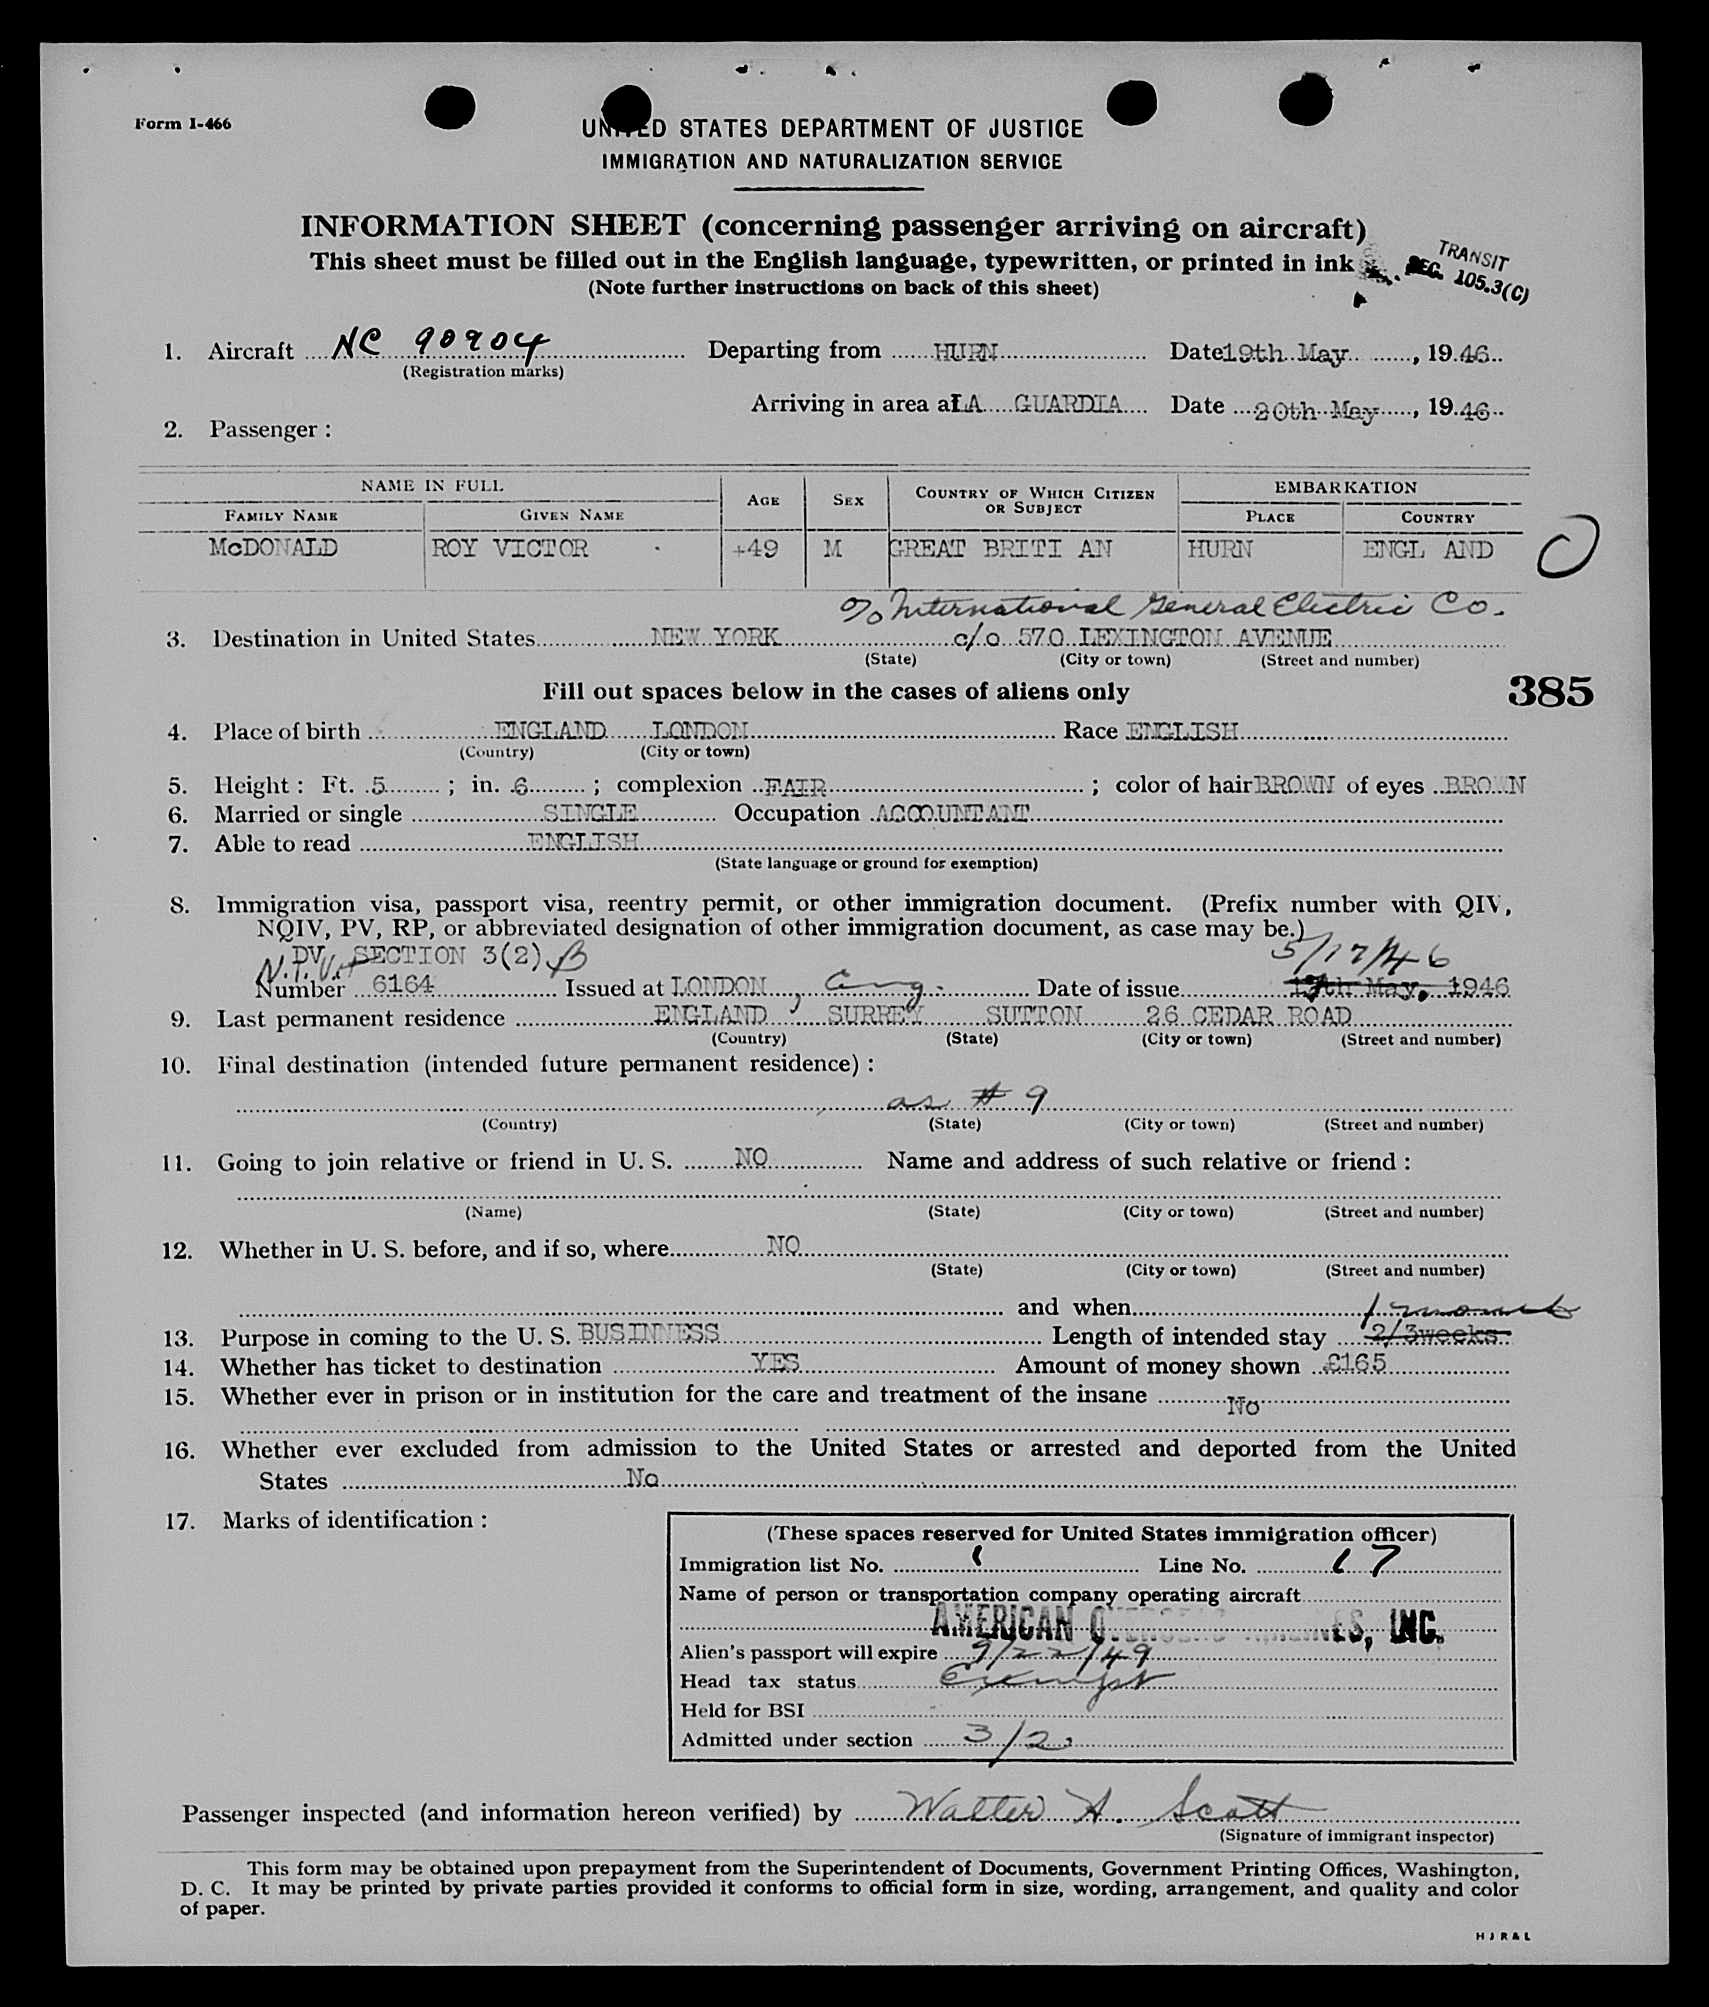 Form I-466
UNITED STATES DEPARTMENT OF JUSTICE
IMMIGRATION AND NATURALIZATION SERVICE
INFORMATION SHEET (concerning passenger arriving on aircraft)
This sheet must be filled out in the English language, typewritten, or printed in ink
(Note further instructions on back of this sheet)
TRANSIT
SEC. 105.3(C)
1. Aircraft NC 90904 Departing from HURN Date 19th May, 1946
(Registration marks)
Arriving in area at LA GUARDIA Date 20th May, 1946
2. Passenger:
NAME IN FULL AGE SEX COUNTRY OF WHICH CITIZEN OR SUBJECT EMBARKATION
FAMILY NAME GIVEN NAME PLACE COUNTRY
McDONALD ROY VICTOR 49 M GREAT BRITI AN HURN ENGL AND
c/o International General Electric Co.
3. Destination in United States NEW YORK c/o 570 LEXINGTON AVENUE
(State) (City or town) (Street and number)
Fill out spaces below in the cases of aliens only
385
4. Place of birth ENGLAND LONDON Race ENGLISH
(Country) (City or town)
5. Height: Ft. 5; in. 6; complexion FAIR; color of hair BROWN of eyes BROWN
6. Married or single SINGLE Occupation ACCOUNTANT
7. Able to read ENGLISH
(State language or ground for exemption)
8. Immigration visa, passport visa, reentry permit, or other immigration document. (Prefix number with QIV,
NQIV, PV, RP, or abbreviated designation of other immigration document, as case may be.)
PV SECTION 3(2) B 5/17/46
Number 6164 Issued at LONDON, Eng. Date of issue 17th May, 1946
9. Last permanent residence ENGLAND SURREY SUTTON 26 CEDAR ROAD
(Country) (State) (City or town) (Street and number)
10. Final destination (intended future permanent residence):
as # 9
(Country) (State) (City or town) (Street and number)
11. Going to join relative or friend in U. S. NO Name and address of such relative or friend:
(Name) (State) (City or town) (Street and number)
12. Whether in U. S. before, and if so, where NO
(State) (City or town) (Street and number)
and when
1 month
13. Purpose in coming to the U. S. BUSINNESS Length of intended stay 2/3weeks.
14. Whether has ticket to destination YES Amount of money shown £165
15. Whether ever in prison or in institution for the care and treatment of the insane No
16. Whether ever excluded from admission to the United States or arrested and deported from the United
States No
17. Marks of identification:
(These spaces reserved for United States immigration officer)
Immigration list No. 1 Line No. 17
Name of person or transportation company operating aircraft
AMERICAN OVERSEAS AIRLINES, INC.
Alien's passport will expire 9/22/49
Head tax status Exempt
Held for BSI
Admitted under section 3/2
Passenger inspected (and information hereon verified) by Walter A. Scott
(Signature of immigrant inspector)
This form may be obtained upon prepayment from the Superintendent of Documents, Government Printing Offices, Washington,
D. C. It may be printed by private parties provided it conforms to official form in size, wording, arrangement, and quality and color
of paper.
H J R & L